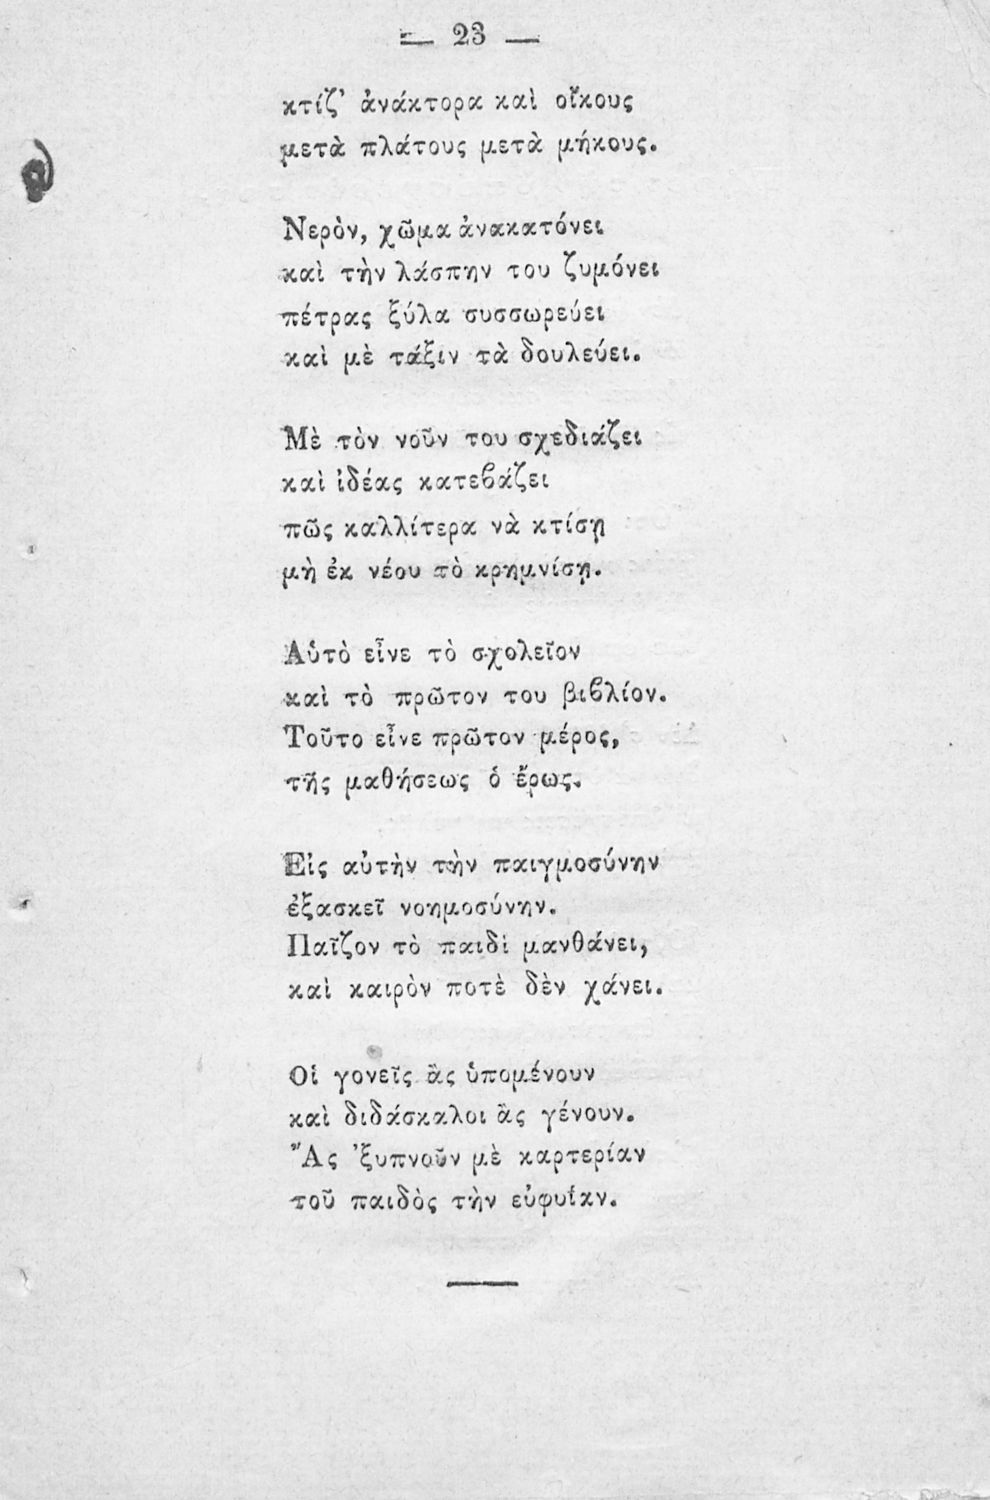 — 23 —
κτίζ’ ἀνάκτορα καὶ οἴκους
μετὰ πλάτους μετὰ μήκους.
Νερὸν, χῶμα ἀνακατόνει
καὶ τὴν λάσπην του ζυμόνει
πέτρας ξύλα συσσωρεύει
καὶ μὲ τάξιν τὰ δουλεύει.
Μὲ τὸν νοῦν του σχεδιάζει
καὶ ἰδέας κατεϐάζει
πῶς καλλίτερα νὰ κτίσῃ
μὴ ἐκ νέου τὸ κρημνίσῃ.
Αὐτὸ εἶνε τὸ σχολεῖον
καὶ τὸ πρῶτον του βιϐλίον.
Τοῦτο εἶνε πρῶτον μέρος,
τῆς μαθήσεως ὁ ἔρως.
Εἰς αὐτὴν τὴν παιγμοσύνην
ἐξασκεῖ νοημοσύνην.
Παῖζον τὸ παιδὶ μανθάνει,
καὶ καιρὸν ποτὲ δὲν χάνει.
Οἱ γονεῖς ἂς ὑπομένουν
καὶ διδάσκαλοι ἂς γένουν.
Ἂς ’ξυπνοῦν μὲ καρτερίαν
τοῦ παιδὸς τὴν εὐφυΐαν.